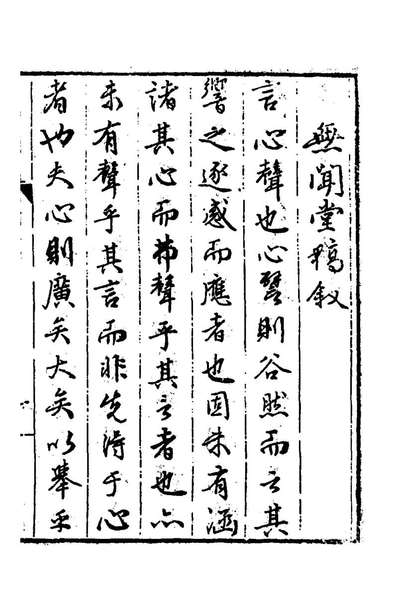 無聞堂稿叙
言心聲也心譬則谷然而言其
響之逐感而應者也固未有涵
諸其心而弗聲乎其言者也亦
未有聲乎其言而非先得于心
者也夫心則廣矣大矣以舉乎